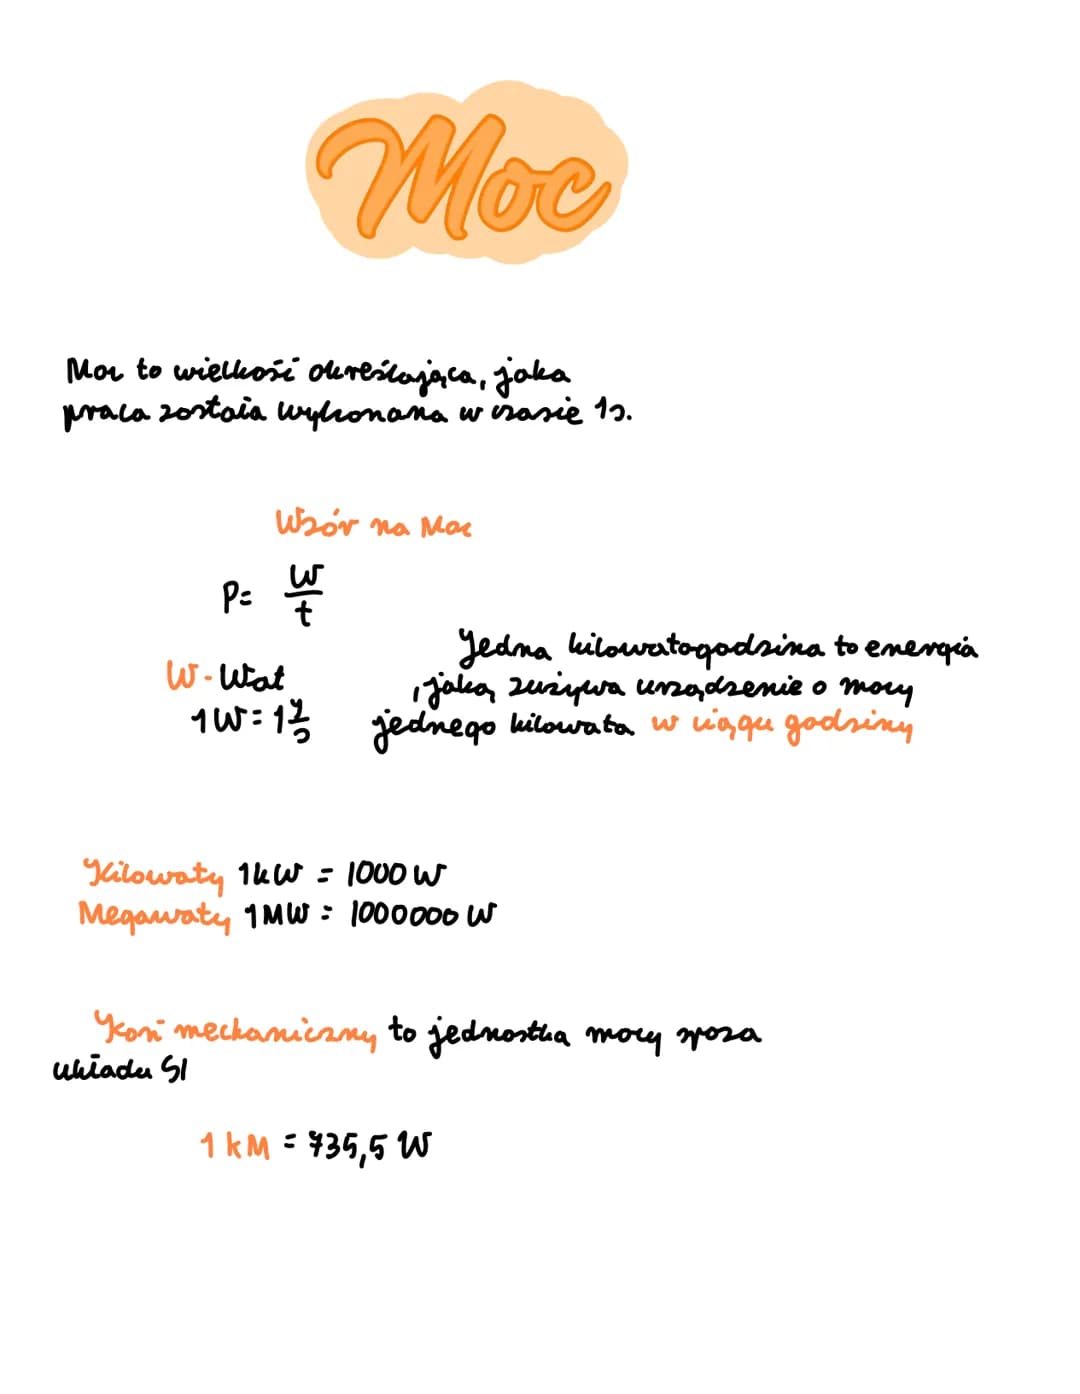 Moc
Moc to wielkość określająca, jaka
praca została wykonana w czasie 1s.
Wzór na Moc
P= W/t
W - Wat
1W = 1 J/s
Jedna kilowatogodzina to energia
, jaką zużywa urządzenie o mocy
jednego kilowata w ciągu godziny
Kilowaty 1kW = 1000 W
Megawaty 1MW = 1000000 W
Koń mechaniczny to jednostka mocy spoza
układu SI
1 kM = 735,5 W